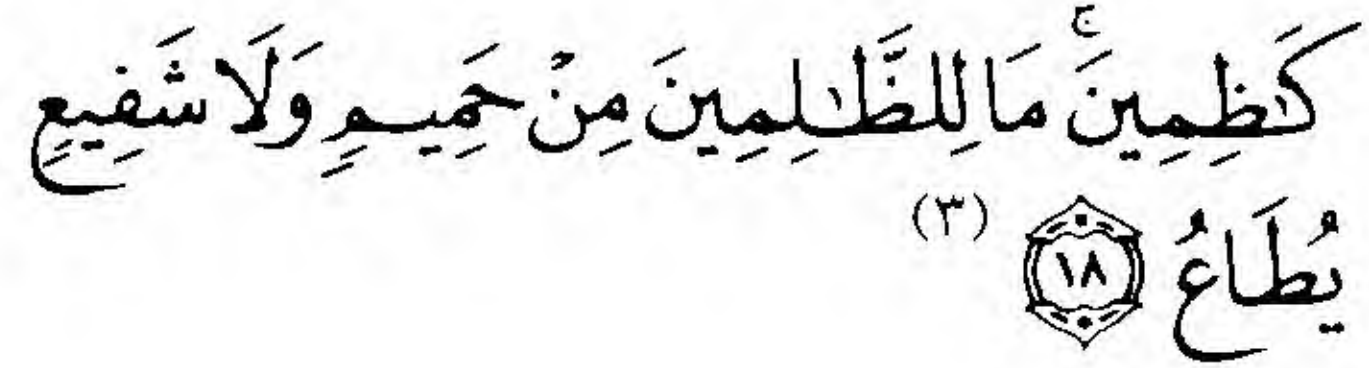 كَٰظِمِينَۚ مَا لِلظَّٰلِمِينَ مِنْ حَمِيمٍ وَلَا شَفِيعٍ
يُطَاعُ ١٨ (٣)